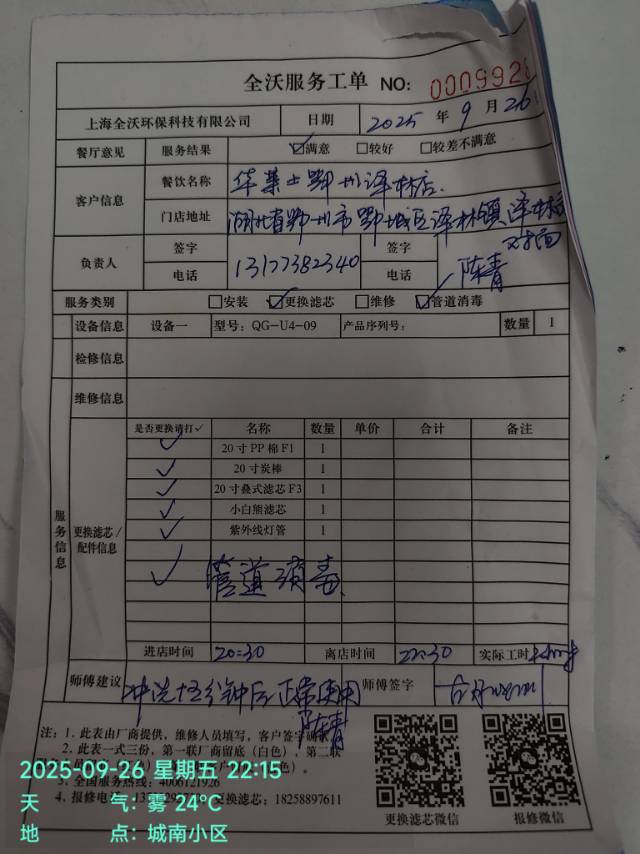 全沃服务工单 NO: 0009928
上海全沃环保科技有限公司 日期 2025 年 9 月 26
餐厅意见 服务结果 ☑满意 □较好 □较差不满意
客户信息 餐饮名称 华莱士鄂州泽林店.
门店地址 湖北省鄂州市鄂城区泽林镇泽林
对面
负责人 签字 签字 陈青
电话 13177382340 电话
服务类别 □安装 ☑更换滤芯 □维修 ☑管道消毒
设备信息 设备一 型号: QG-U4-09 产品序列号: 数量 1
检修信息
维修信息
服务信息
更换滤芯/配件信息
是否更换请打✓ 名称 数量 单价 合计 备注
✓ 20寸PP棉F1 1
✓ 20寸炭棒 1
✓ 20寸叠式滤芯F3 1
✓ 小白熊滤芯 1
✓ 紫外线灯管 1
✓ 管道消毒
进店时间 20:30 离店时间 22:30 实际工时
师傅建议 冲洗十五分钟后正常使用 师傅签字
陈青
注: 1. 此表由厂商提供, 维修人员填写, 客户签字
2. 此表一式三份, 第一联厂商留底(白色), 第二联
3. 全国服务热线: 4006121926
4. 报修电话: 更换滤芯: 18258897611
更换滤芯微信 报修微信
2025-09-26 星期五 22:15
天 气: 雾 24°C
地 点: 城南小区